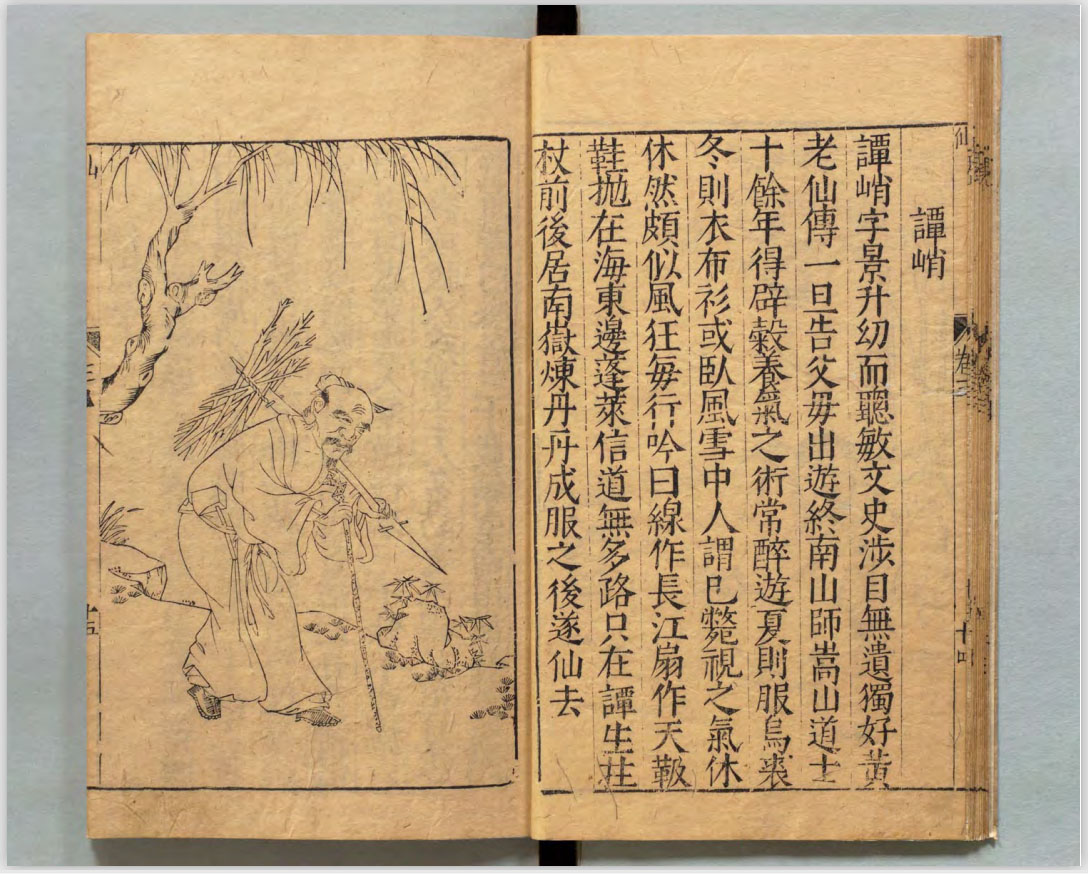 譚峭
譚峭字景升幼而聰敏文史涉目無遺獨好黃
老仙傳一旦告父毋出遊終南山師嵩山道士
十餘年得辟糓養氣之術常醉遊夏則服烏裘
冬則衣布衫或臥風雪中人謂已斃視之氣休
休然頗似風狂每行吟曰線作長江扇作天靸
鞋抛在海東邊蓬萊信道無多路只在譚生拄
杖前後居南嶽煉丹丹成服之後遂仙去
卷三
十四
十五